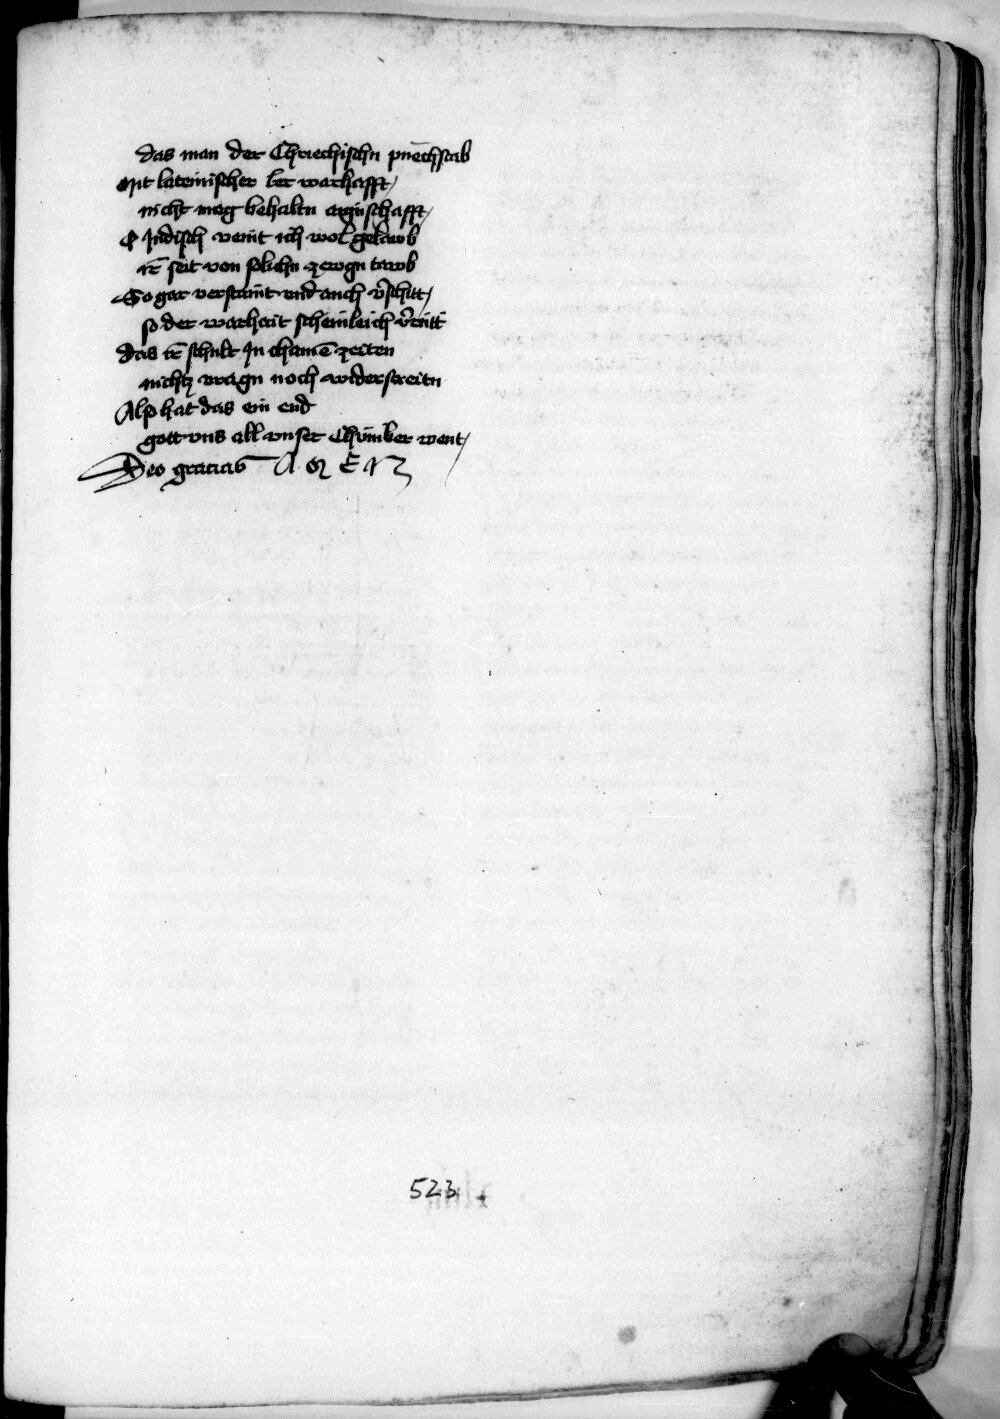 das man der Chriechischn puechstab
Mit lateinischer ler warhafft /
nicht mag behaltn aignschafft /
¶ Indisch vemt ich wol gelaub
ir̄ seit von solichn zewgn tawb
So gar verstumt vnd auch v̄schitt /
so der warhait scheinleich v̄tritt
das ir̄ schult In chainē zeiten
nichtz wagn noch widerstreitn
Also hat das ein end
gott vns all vnser Chumber went /
Deo gracias A M E N
523